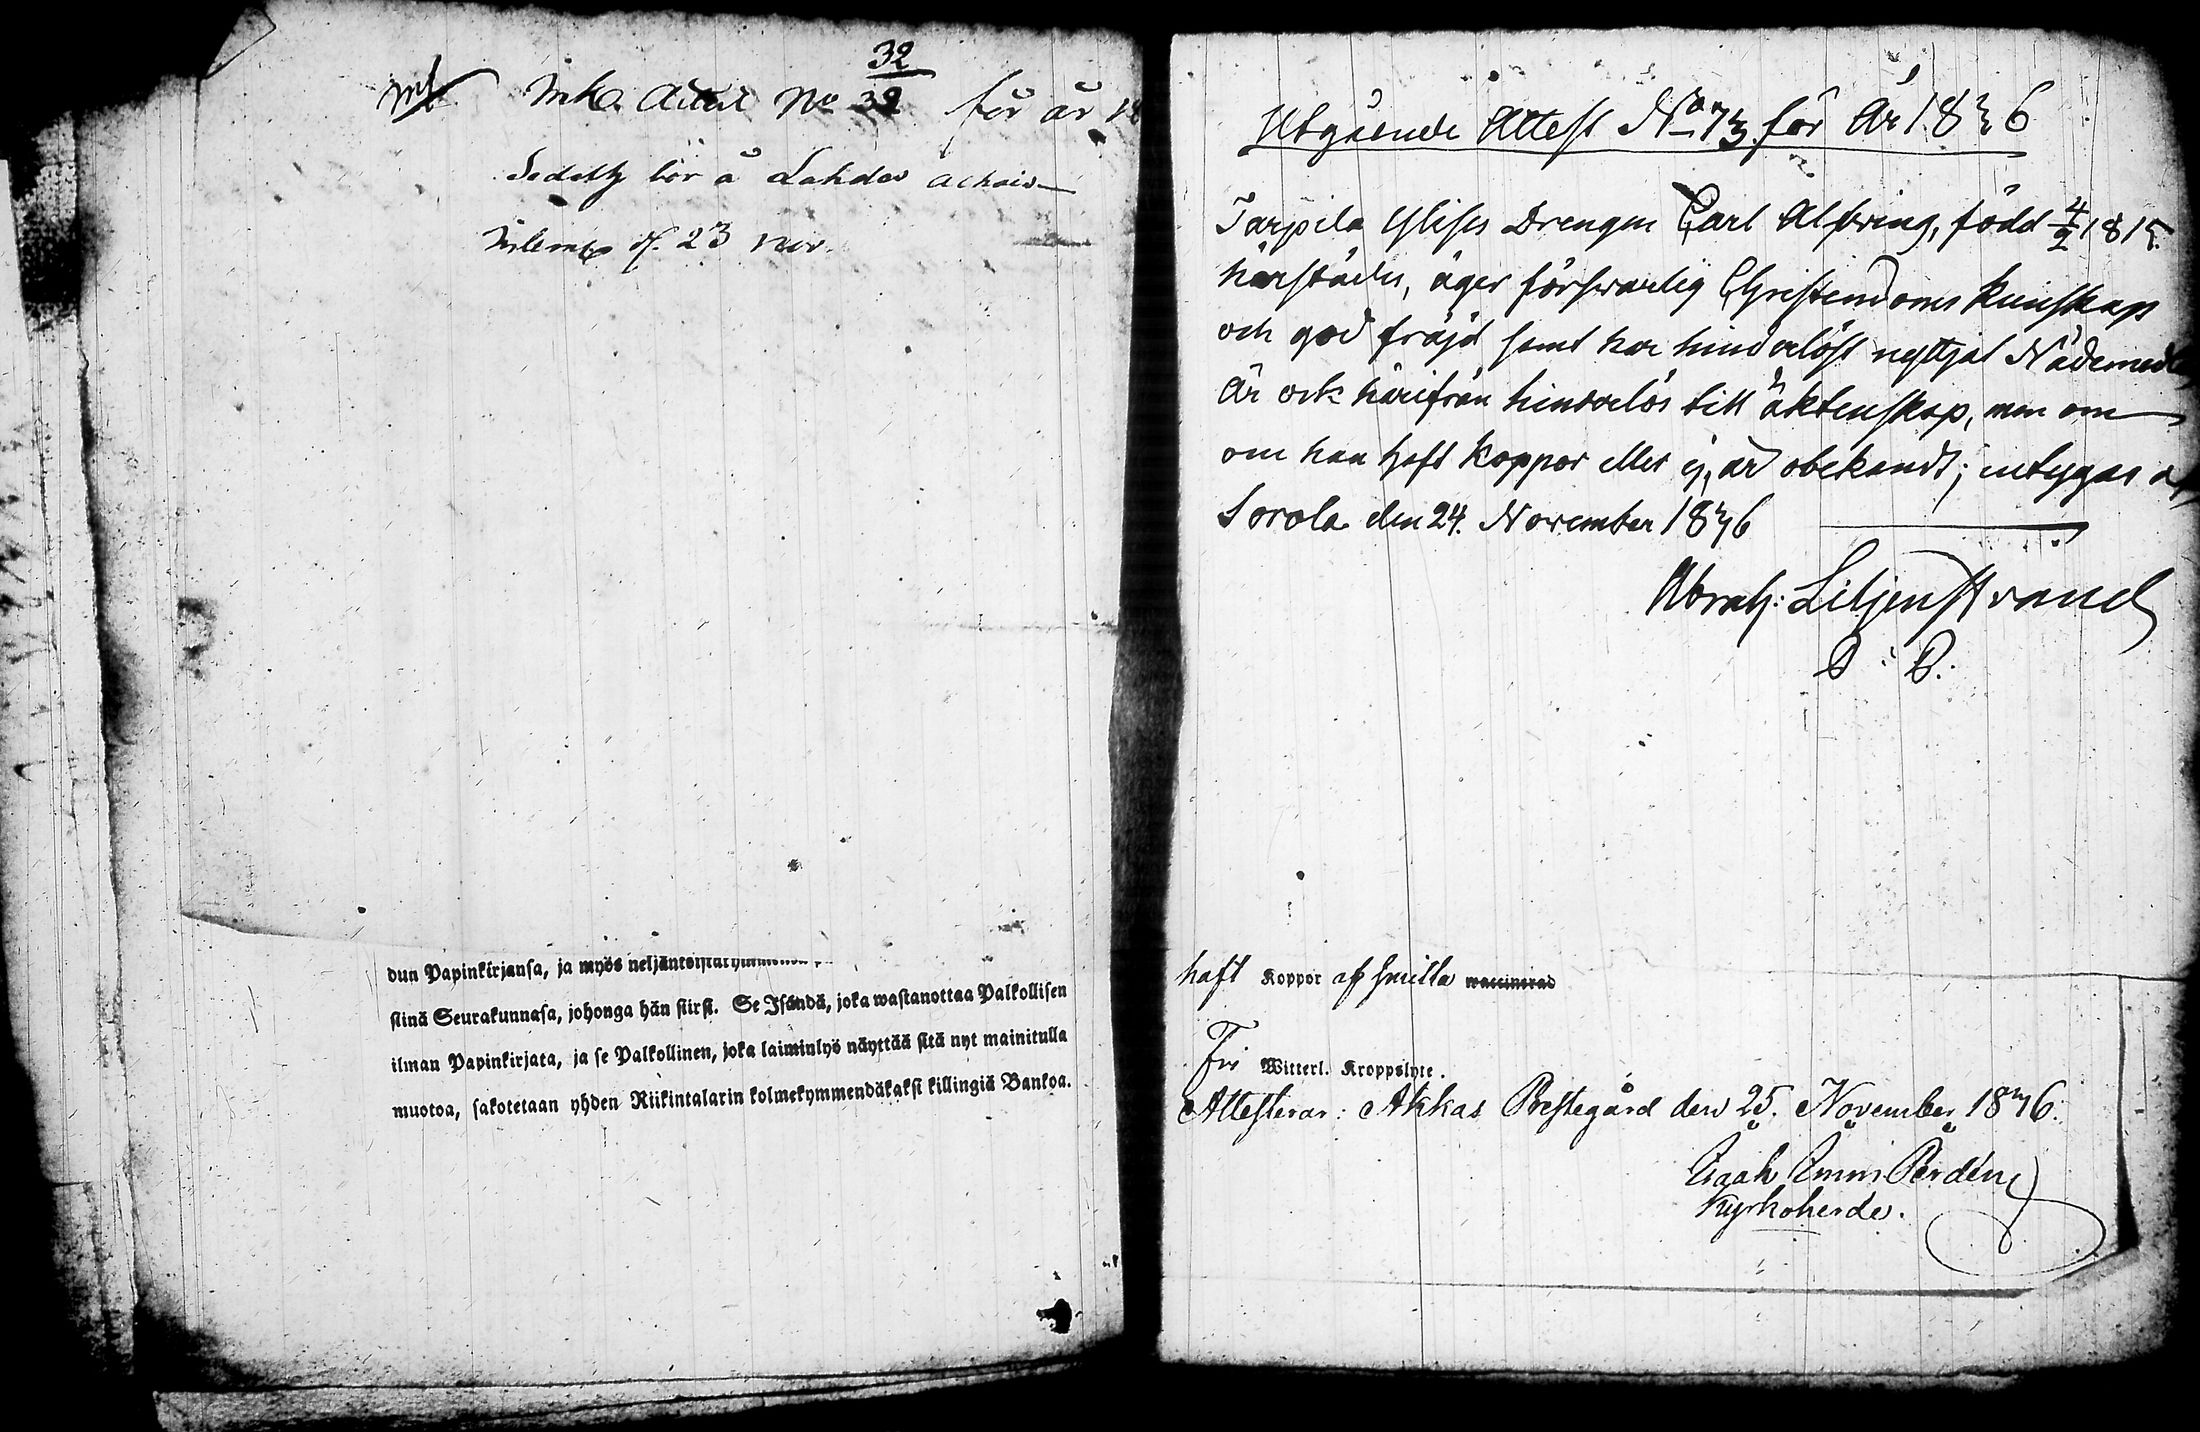 32
Ink. Attest No 32 för år 18
23 nov.
dun Papinkirjansa, ja myös
siinä Seurakunnasa, johonga hän siirsi. Se Isändä, joka wastanottaa Palkollisen
ilman Papinkirjata, ja se Palkollinen, joka laiminlyö näyttää sitä nyt mainitulla
muotoa, sakotetaan yhden Riikintalarin kolmekymmendäkaksi killingiä Bankoa.
Utgående Attest No 73 för År 1836
Tarpila Drengen Carl Alfring, född 4/2 1815
härstädes, äger förswarlig Christendoms kunskap
och god fräjd samt har hinderlöst nyttjat Nådemedlen
Är ock härifrån hinderlös till äktenskap, men om
om han haft koppor eller ej, är obekandt; intygas af
Lovola den 24. November 1836
Abrah: Liljenstrand
haft Koppor af smitta waccinerad
Fri Witterl. Kroppslyte.
Attesterar: Akkas Prestegård den 25. November 1836.
Kyrkoherde.